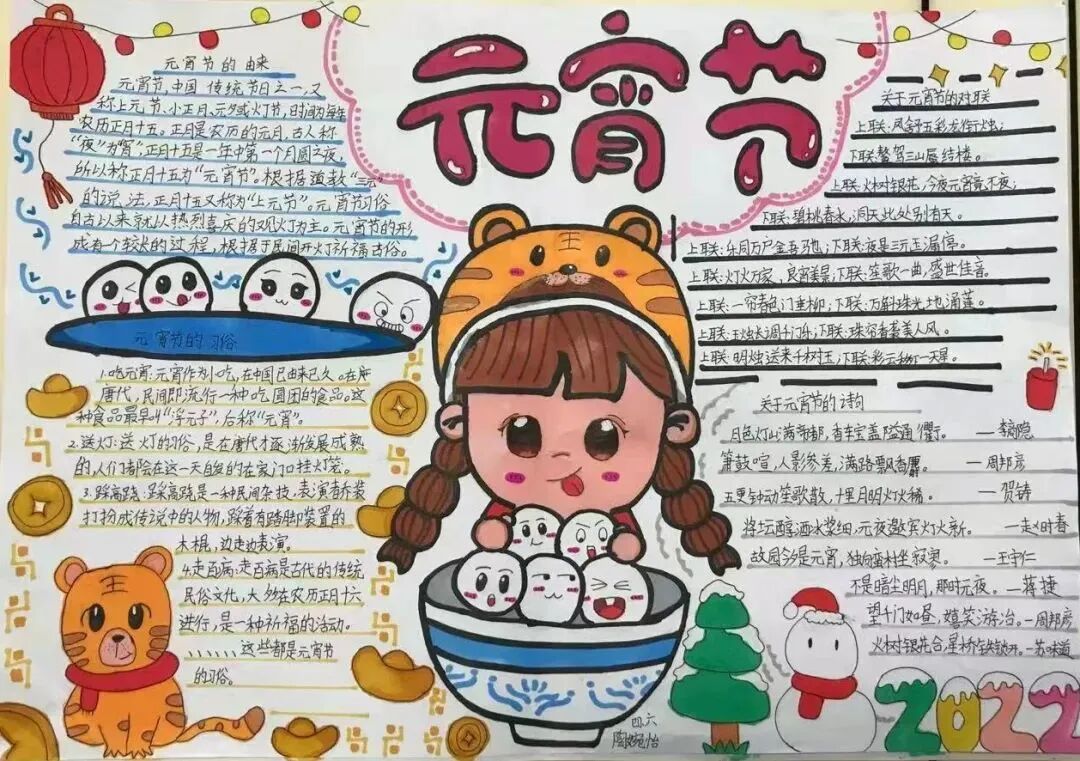 元宵节
元宵节的由来
元宵节,中国传统节日之一,又
称上元节、小正月、元夕或灯节,时间为每年
农历正月十五。正月是农历的元月,古人称
“夜”为“宵”,正月十五是一年中第一个月圆之夜,
所以称正月十五为“元宵节”。根据道教“三元”
的说法,正月十五又称为“上元节”。元宵节习俗
自古以来就以热烈喜庆的观灯为主。元宵节的形
成有个较长的过程,根据于民间开灯祈福古俗。
元宵节的习俗
1.吃元宵:元宵作为小吃,在中国已由来已久。在唐
唐代,民间即流行一种吃圆团的食品。这
种食品最早叫“浮元子”,后称“元宵”。
2.送灯:送灯的习俗,是在唐代才逐渐发展成熟
的,人们都会在这一天自发的在家门口挂灯笼。
3.踩高跷:踩高跷是一种民间杂技,表演者乔装
打扮成传说中的人物,踩着有踏脚装置的
木棍,边走边表演。
4.走百病:走百病是古代的传统
民俗文化,大多在农历正月十六
进行,是一种祈福的活动。
、、、、、、这些都是元宵节
的习俗。
关于元宵节的对联
上联:凤舒五彩龙衔烛;
下联:鳌驾三山蜃结楼。
上联:火树银花,今夜元宵竟不夜;
下联:碧桃春水,洞天此处别有天。
上联:乐同万户金吾弛;下联:夜是三元玉漏停。
上联:灯火万家,良宵美景;下联:笙歌一曲,盛世佳音。
上联:一帘春色门垂柳;下联:万斛珠光地涌莲。
上联:玉烛长调千门乐;下联:珠帘卷美人风。
上联:明烛送来千树玉;下联:彩云移下一天星。
关于元宵节的诗句
月色灯山满帝都,香车宝盖隘通衢。——李商隐
箫鼓喧,人影参差,满路飘香麝。——周邦彦
五更钟动笙歌散,十里月明灯火稀。——贺铸
将坛醇酒冰浆细,元夜邀宾灯火新。——赵时春
故园今夕是元宵,独向蛮村坐寂寥。——王守仁
不是暗尘明月,那时元夜。——蒋捷
望千门如昼,嬉笑游冶。——周邦彦
火树银花合,星桥铁锁开。——苏味道
四.六
陶婉怡
2022